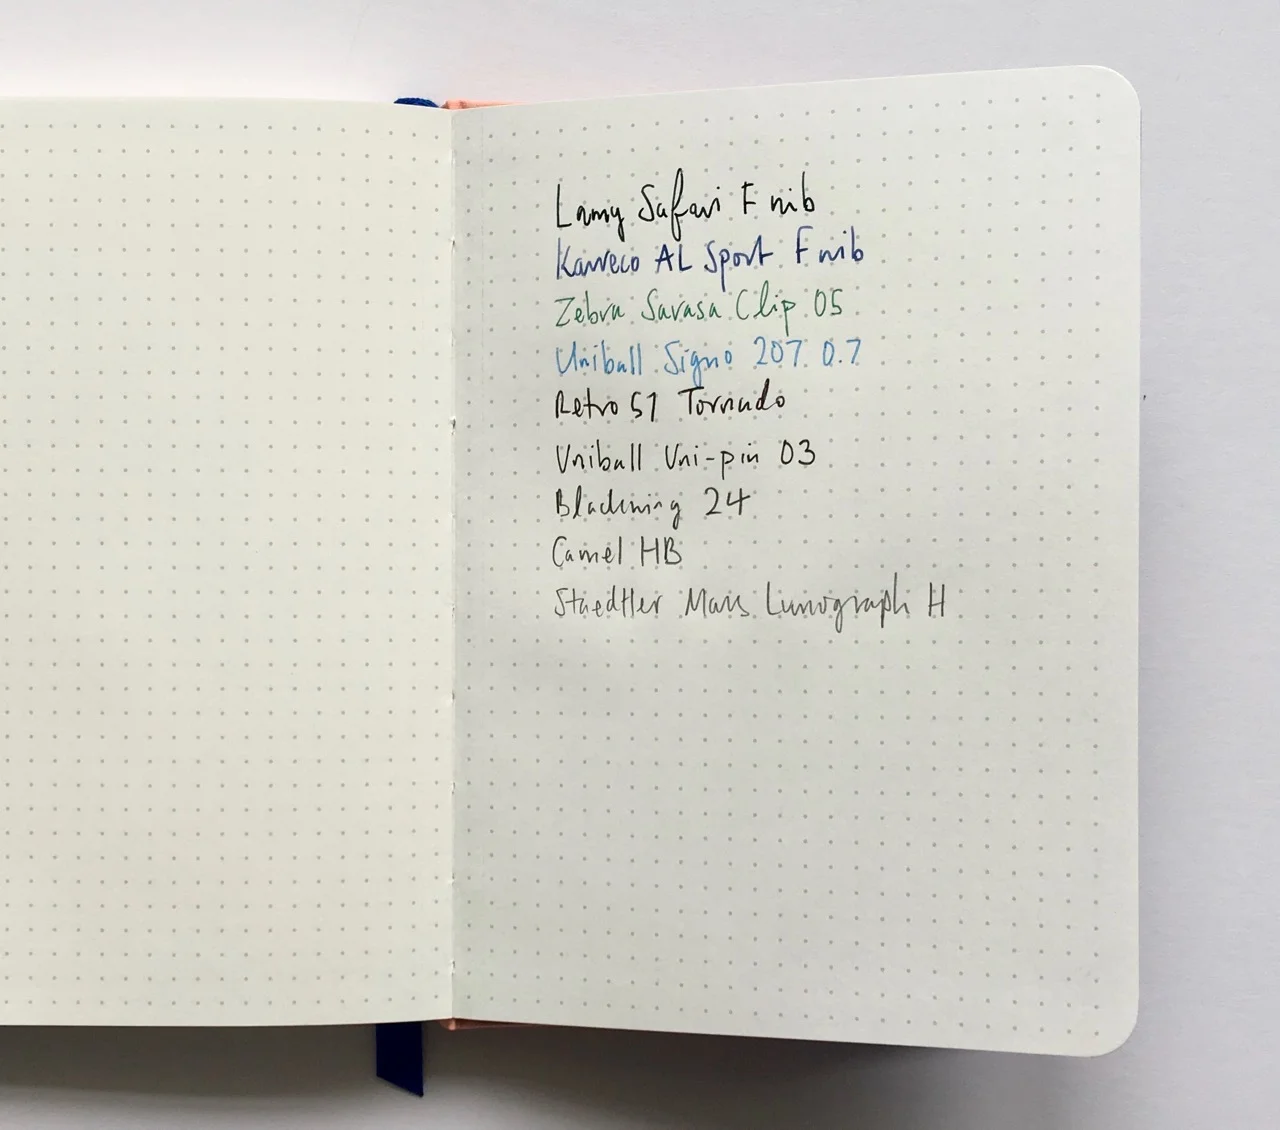 Lamy Safari F nib
Kaweco AL Sport F nib
Zebra Sarasa Clip 05
Uniball Signo 207 0.7
Retro 51 Tornado
Uniball Uni-pin 03
Blackwing 24
Camel HB
Staedtler Mars Lumograph H